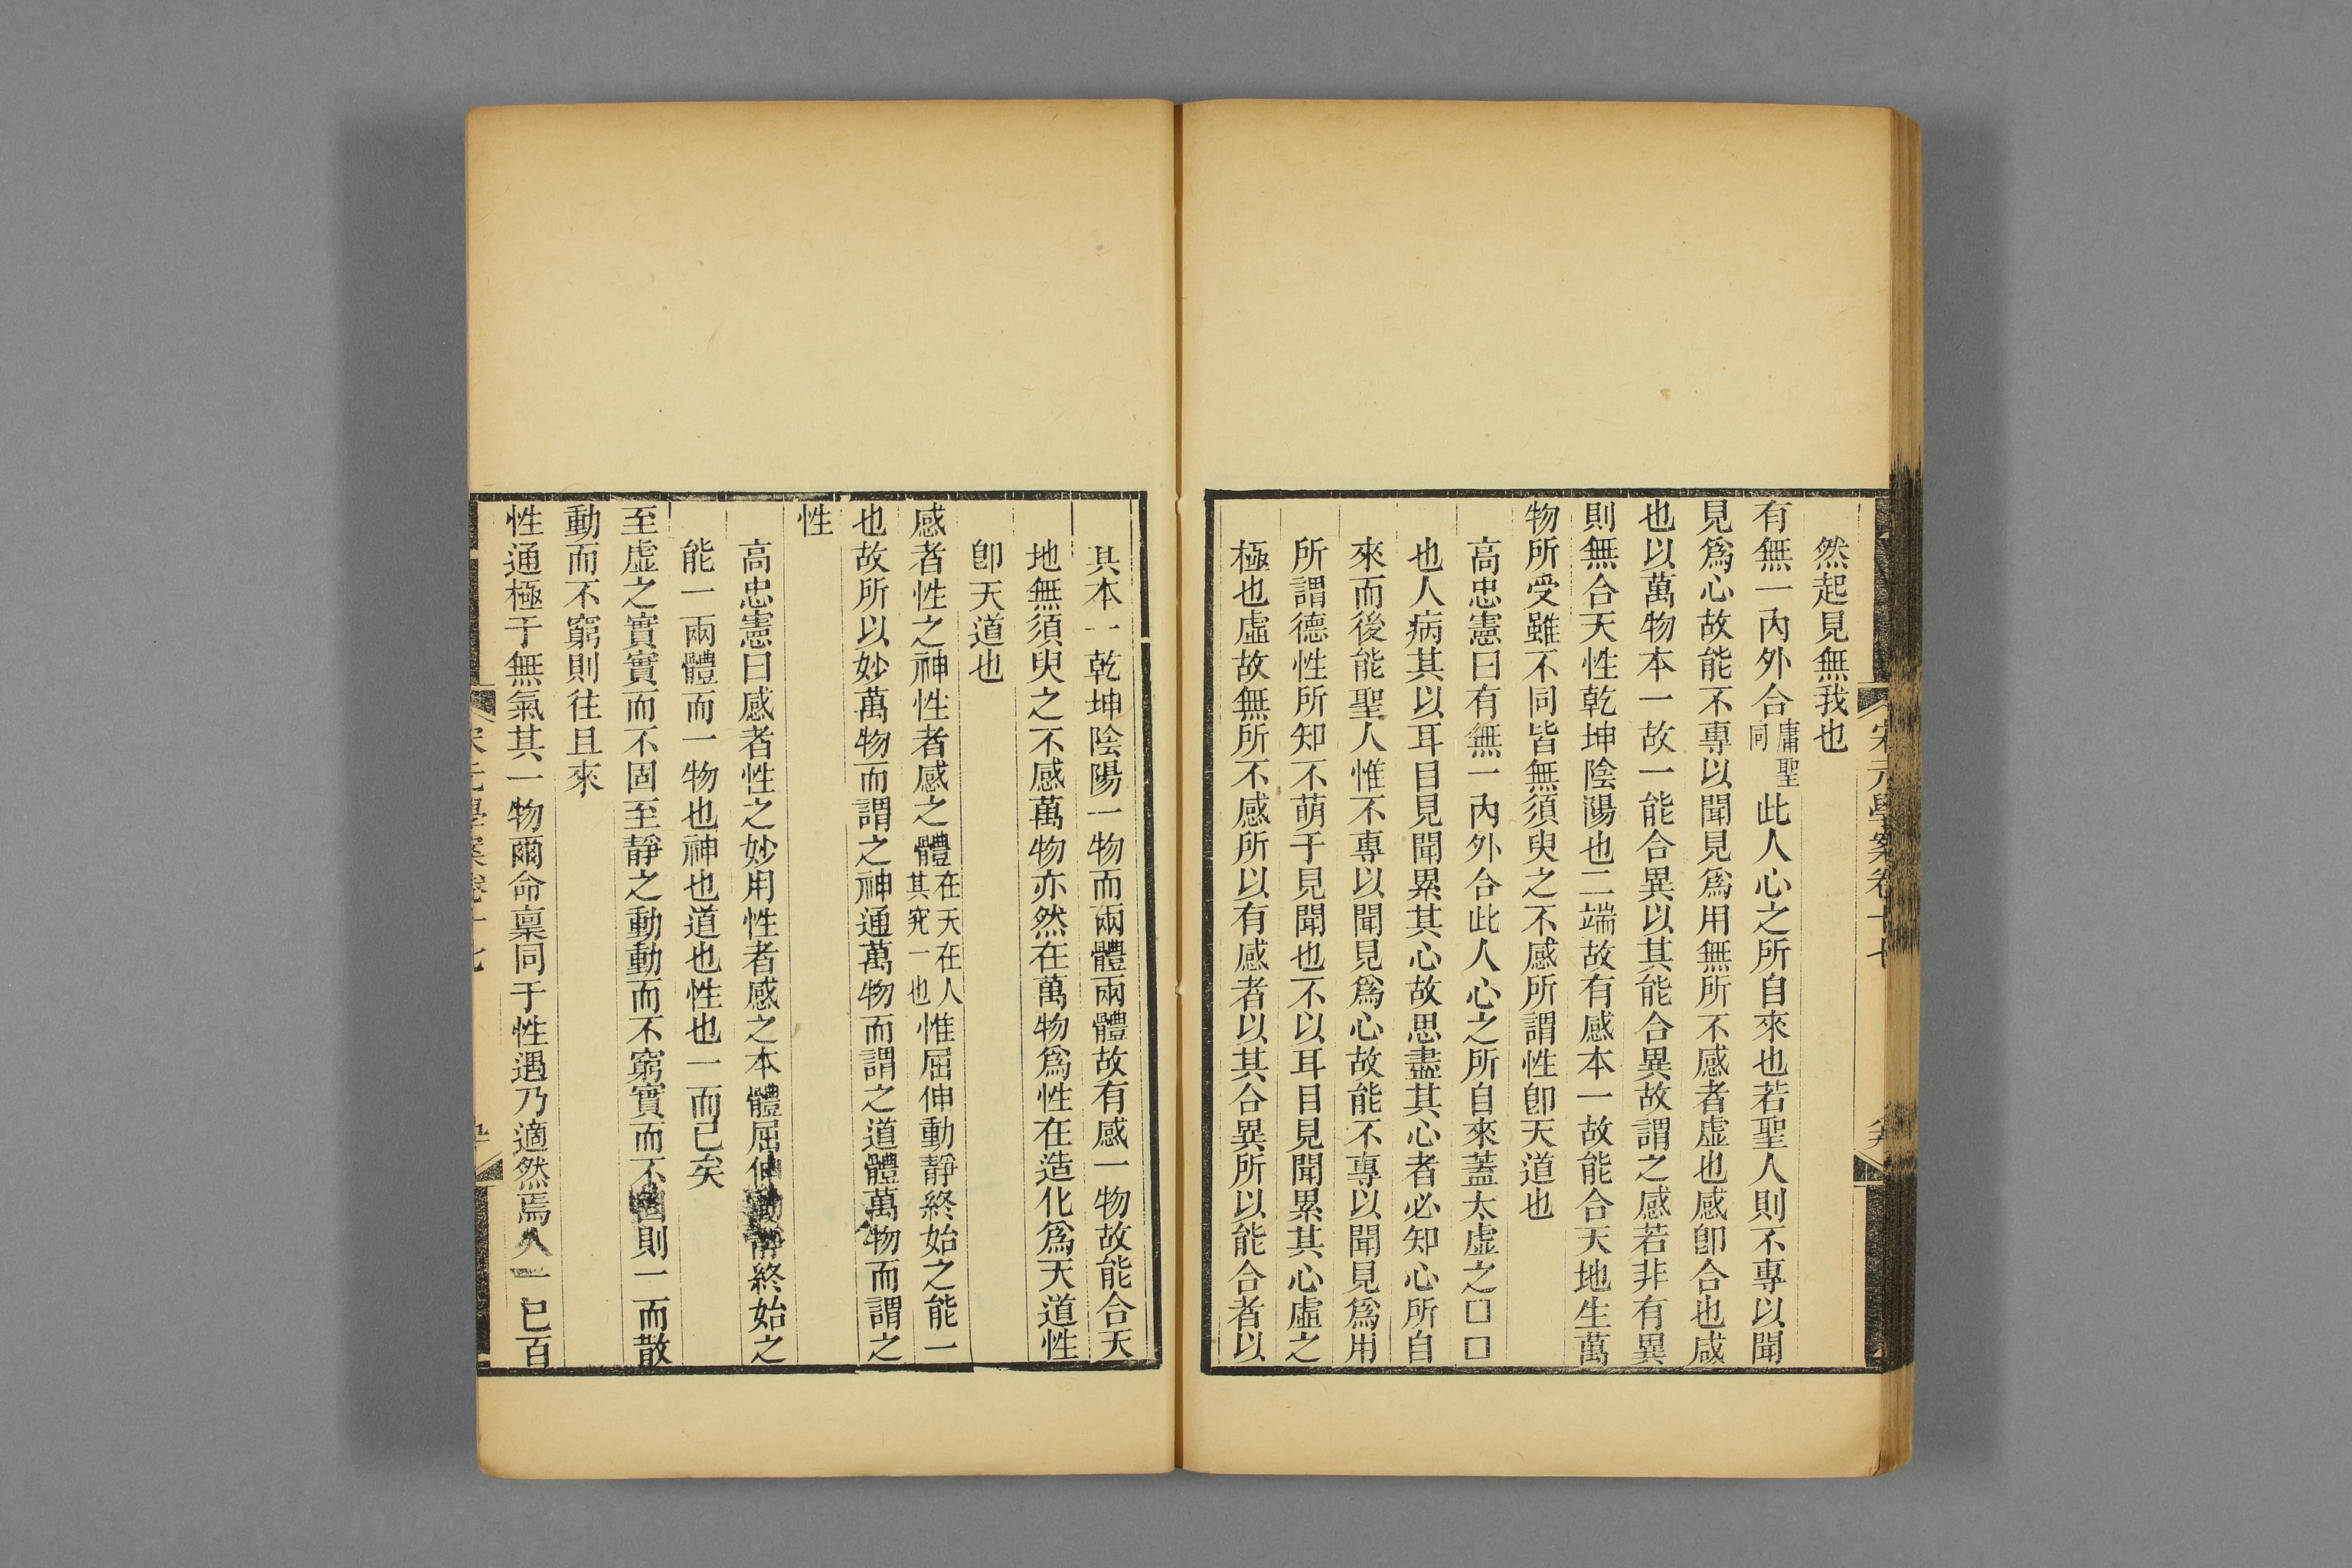 宋元學案卷十七
然起見無我也
有無一內外合庸聖同此人心之所自來也若聖人則不專以聞
見爲心故能不專以聞見爲用無所不感者虛也感卽合也咸
也以萬物本一故一能合異以其能合異故謂之感若非有異
則無合天性乾坤陰陽也二端故有感本一故能合天地生萬
物所受雖不同皆無須臾之不感所謂性卽天道也
高忠憲曰有無一內外合此人心之所自來蓋太虛之□□
也人病其以耳目見聞累其心故思盡其心者必知心所自
來而後能聖人惟不專以聞見爲心故能不專以聞見爲用
所謂德性所知不萌于見聞也不以耳目見聞累其心虛之
極也虛故無所不感所以有感者以其合異所以能合者以
其本一乾坤陰陽一物而兩體兩體故有感一物故能合天
地無須臾之不感萬物亦然在萬物爲性在造化爲天道性
卽天道也
感者性之神性者感之體在天在人其究一也惟屈伸動靜終始之能一
也故所以妙萬物而謂之神通萬物而謂之道體萬物而謂之
性
高忠憲曰感者性之妙用性者感之本體屈伸動靜終始之
能一兩體而一物也神也道也性也一而已矣
至虛之實實而不固至靜之動動而不窮實而不固則一而散
動而不窮則往且來
性通極于無氣其一物爾命稟同于性遇乃適然焉人一已百
宋元學案卷十七